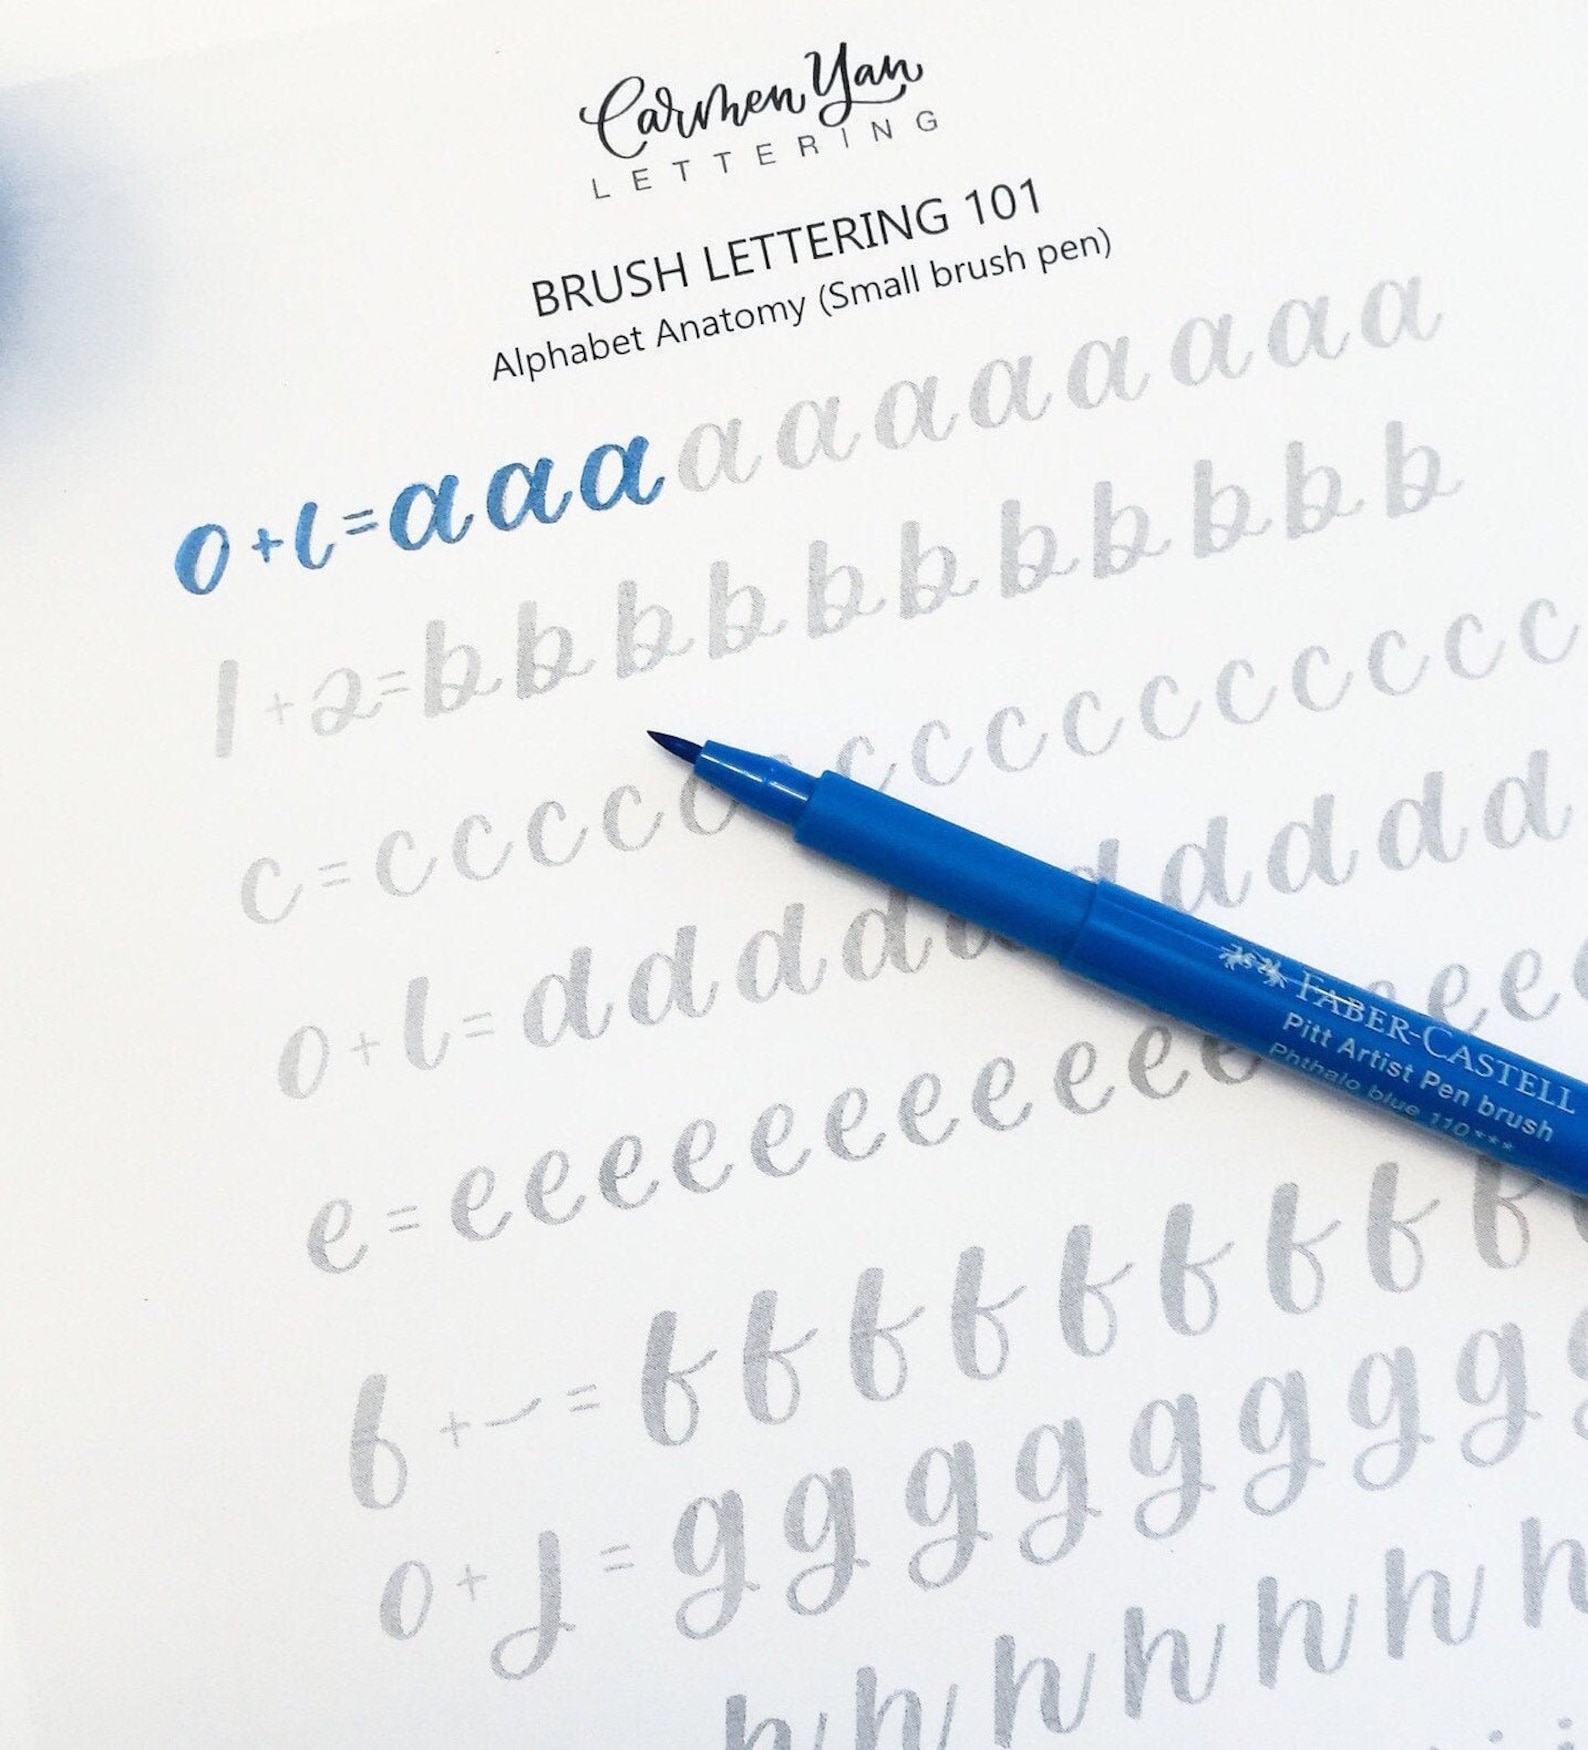 Carmen Yan
LETTERING
BRUSH LETTERING 101
Alphabet Anatomy (Small brush pen)
o + l = a a a a a a a a a a a
l + 2 = b b b b b b b b b b b
c = c c c c c c c c c c c c c c c
o + l = d d d d d d d d d
e = e e e e e e e e e e e e e
f + - = f f f f f f f f f
o + j = g g g g g g g g
h h h h h h h
FABER-CASTELL
Pitt Artist Pen brush
Phthalo blue 110***